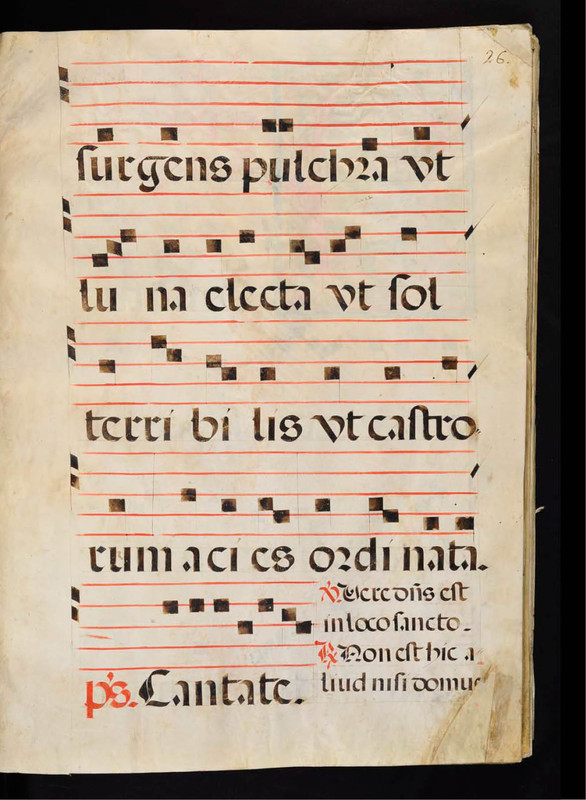 26.
surgens pulchra vt
lu na electa vt sol
terri bi lis vt castro
rum aci es ordi nata.
ps. Cantate.
V. Vere dn̄s est
in loco sancto.
R. Non est hic a
liud nisi domus